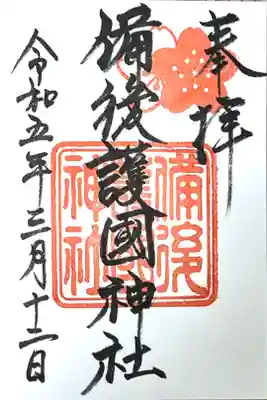 奉拝
備後護國神社
令和五年三月十二日
備後
護國
神社